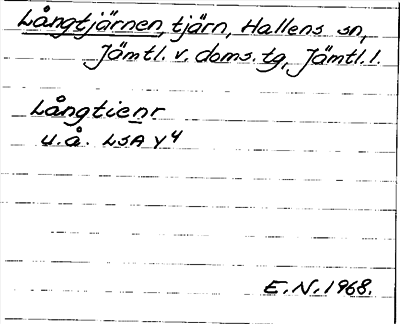 Långtjärnen, tjärn, Hallens sn,
Jämtl. v. doms. tg, Jämtl. l.
Långtienr
u.å. LSA Y 4
E.N. 1968.